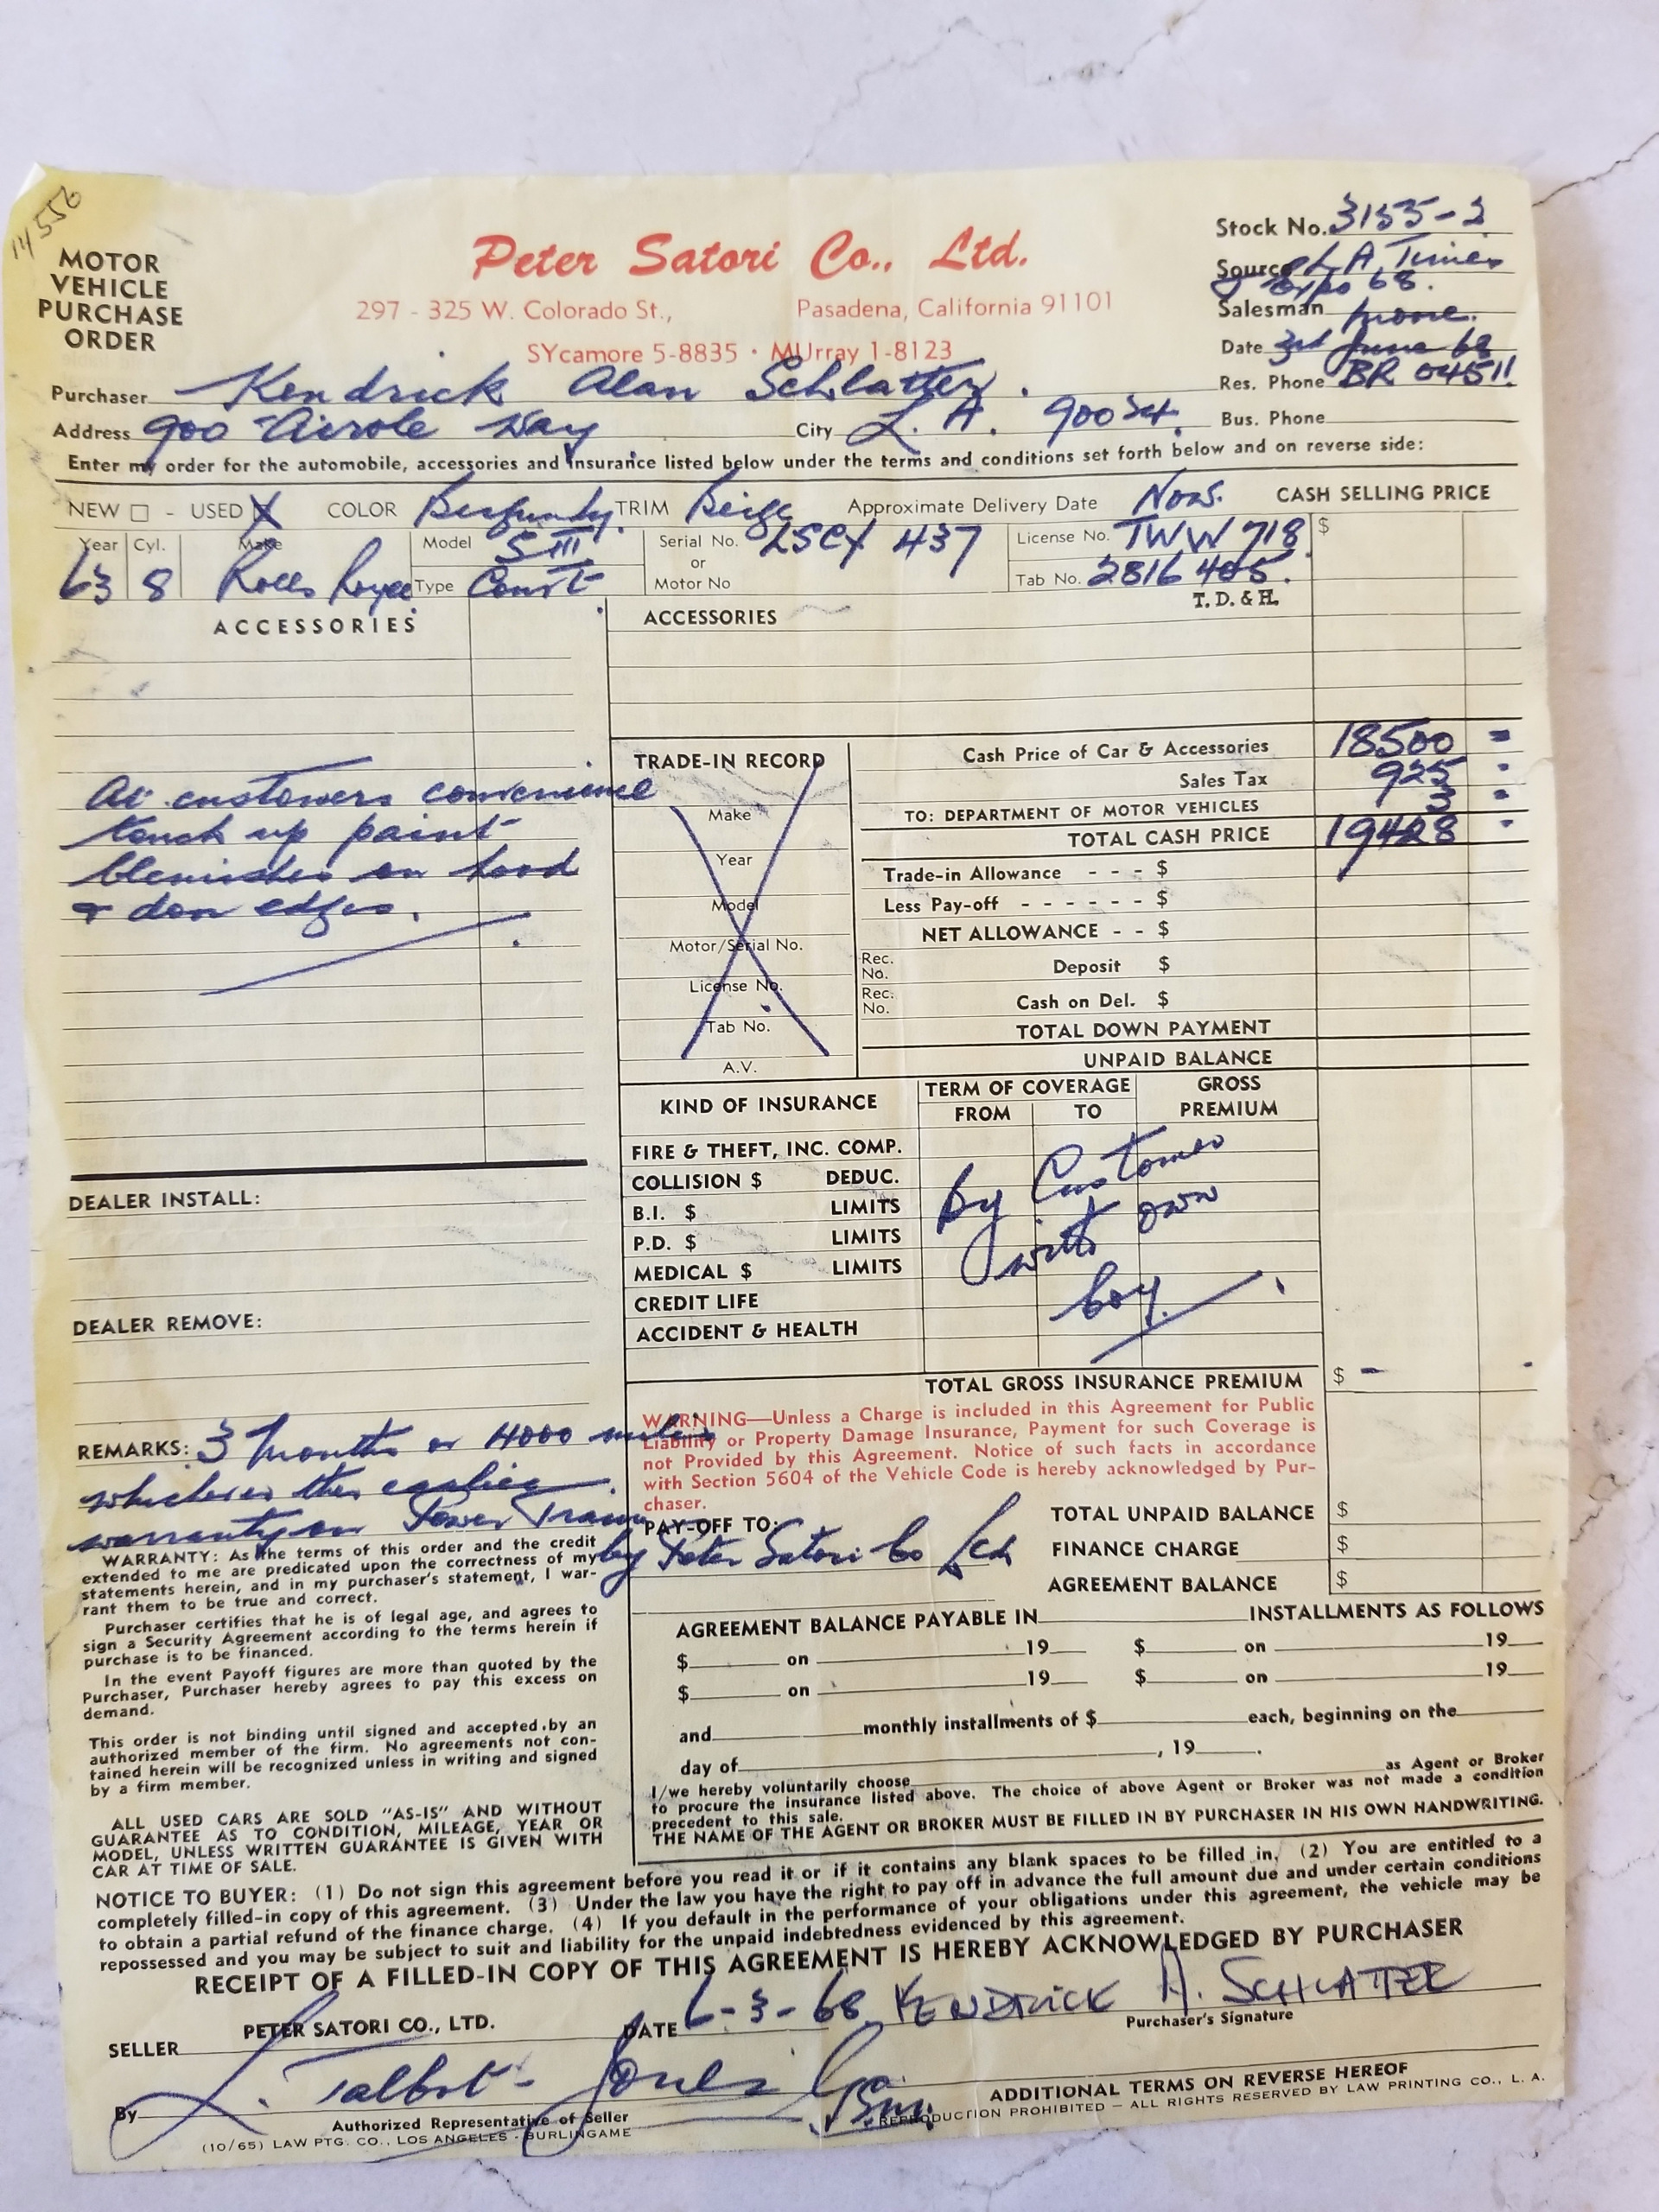 14550
MOTOR
VEHICLE
PURCHASE
ORDER
Peter Satori Co., Ltd.
297 - 325 W. Colorado St., Pasadena, California 91101
SYcamore 5-8835 · MUrray 1-8123
Stock No. 3155-2
Source L A Times
Expo 68.
Salesman phone.
Date 3rd June 68
Res. Phone BR 04511
Purchaser Kendrick Alan Schlatter.
Address 900 Airole Way City L. A. 90024. Bus. Phone
Enter my order for the automobile, accessories and insurance listed below under the terms and conditions set forth below and on reverse side:
NEW □ - USED X COLOR Burgundy. TRIM Beige Approximate Delivery Date Now. CASH SELLING PRICE
Year Cyl. Make Model S III Serial No. LSCX 437 License No. TWW 718 $
or
63 8 Rolls Royce. Type Cont. Motor No Tab No. 2816 405.
T. D. & H.
ACCESSORIES ACCESSORIES
At customers convenience
touch up paint
blemishes on hood
& door edges.
TRADE-IN RECORD
Make
Year
Model
Motor/Serial No.
License No.
Tab No.
A.V.
Cash Price of Car & Accessories 18500 =
Sales Tax 925 =
TO: DEPARTMENT OF MOTOR VEHICLES 3 =
TOTAL CASH PRICE 19428 -
Trade-in Allowance - - - $
Less Pay-off - - - - - - $
NET ALLOWANCE - - $
Rec. No. Deposit $
Rec. No. Cash on Del. $
TOTAL DOWN PAYMENT
UNPAID BALANCE
KIND OF INSURANCE TERM OF COVERAGE GROSS
FROM TO PREMIUM
FIRE & THEFT, INC. COMP.
COLLISION $ DEDUC.
B.I. $ LIMITS
P.D. $ LIMITS
MEDICAL $ LIMITS
CREDIT LIFE
ACCIDENT & HEALTH
By Customer
with own
Coy.
TOTAL GROSS INSURANCE PREMIUM $ -
DEALER INSTALL:
DEALER REMOVE:
REMARKS: 3 months or 4000 miles
whichever the earlier.
warranty on Power Train
by Peter Satori Co Ltd
WARNING—Unless a Charge is included in this Agreement for Public
Liability or Property Damage Insurance, Payment for such Coverage is
not Provided by this Agreement. Notice of such facts in accordance
with Section 5604 of the Vehicle Code is hereby acknowledged by Pur-
chaser.
PAY-OFF TO:
TOTAL UNPAID BALANCE $
FINANCE CHARGE $
AGREEMENT BALANCE $
WARRANTY: As the terms of this order and the credit
extended to me are predicated upon the correctness of my
statements herein, and in my purchaser's statement, I war-
rant them to be true and correct.
Purchaser certifies that he is of legal age, and agrees to
sign a Security Agreement according to the terms herein if
purchase is to be financed.
In the event Payoff figures are more than quoted by the
Purchaser, Purchaser hereby agrees to pay this excess on
demand.
This order is not binding until signed and accepted by an
authorized member of the firm. No agreements not con-
tained herein will be recognized unless in writing and signed
by a firm member.
ALL USED CARS ARE SOLD "AS-IS" AND WITHOUT
GUARANTEE AS TO CONDITION, MILEAGE, YEAR OR
MODEL, UNLESS WRITTEN GUARANTEE IS GIVEN WITH
CAR AT TIME OF SALE.
AGREEMENT BALANCE PAYABLE IN INSTALLMENTS AS FOLLOWS
$ on 19 $ on 19
$ on 19 $ on 19
and monthly installments of $ each, beginning on the
day of , 19 .
I/we hereby voluntarily choose as Agent or Broker
to procure the insurance listed above. The choice of above Agent or Broker was not made a condition
precedent to this sale.
THE NAME OF THE AGENT OR BROKER MUST BE FILLED IN BY PURCHASER IN HIS OWN HANDWRITING.
NOTICE TO BUYER: (1) Do not sign this agreement before you read it or if it contains any blank spaces to be filled in. (2) You are entitled to a
completely filled-in copy of this agreement. (3) Under the law you have the right to pay off in advance the full amount due and under certain conditions
to obtain a partial refund of the finance charge. (4) If you default in the performance of your obligations under this agreement, the vehicle may be
repossessed and you may be subject to suit and liability for the unpaid indebtedness evidenced by this agreement.
RECEIPT OF A FILLED-IN COPY OF THIS AGREEMENT IS HEREBY ACKNOWLEDGED BY PURCHASER
SELLER PETER SATORI CO., LTD. DATE 6-3-68 KENDRICK A. SCHLATTER
Purchaser's Signature
By L. Talbot-Jones
Authorized Representative of Seller
ADDITIONAL TERMS ON REVERSE HEREOF
REPRODUCTION PROHIBITED — ALL RIGHTS RESERVED BY LAW PRINTING CO., L. A.
(10/65) LAW PTG. CO., LOS ANGELES - BURLINGAME